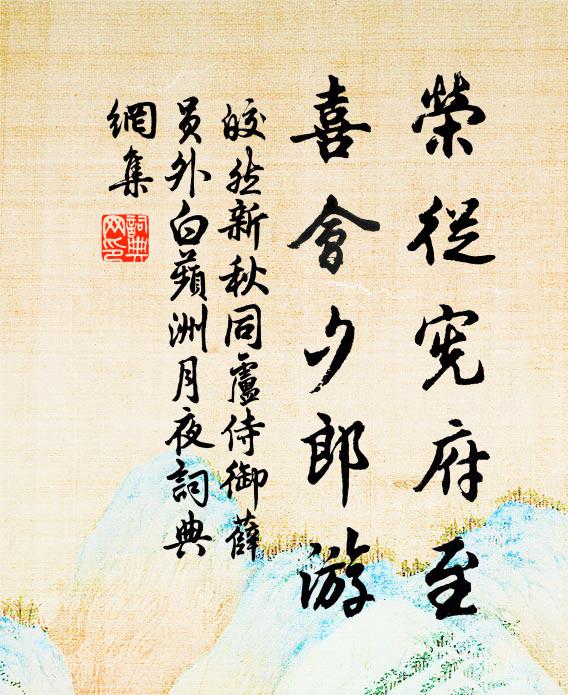 榮從宪府至
喜會夕郎游
皎然新秋同盧侍御薛
員外白蘋洲月夜詞典
網集
詞典
网印